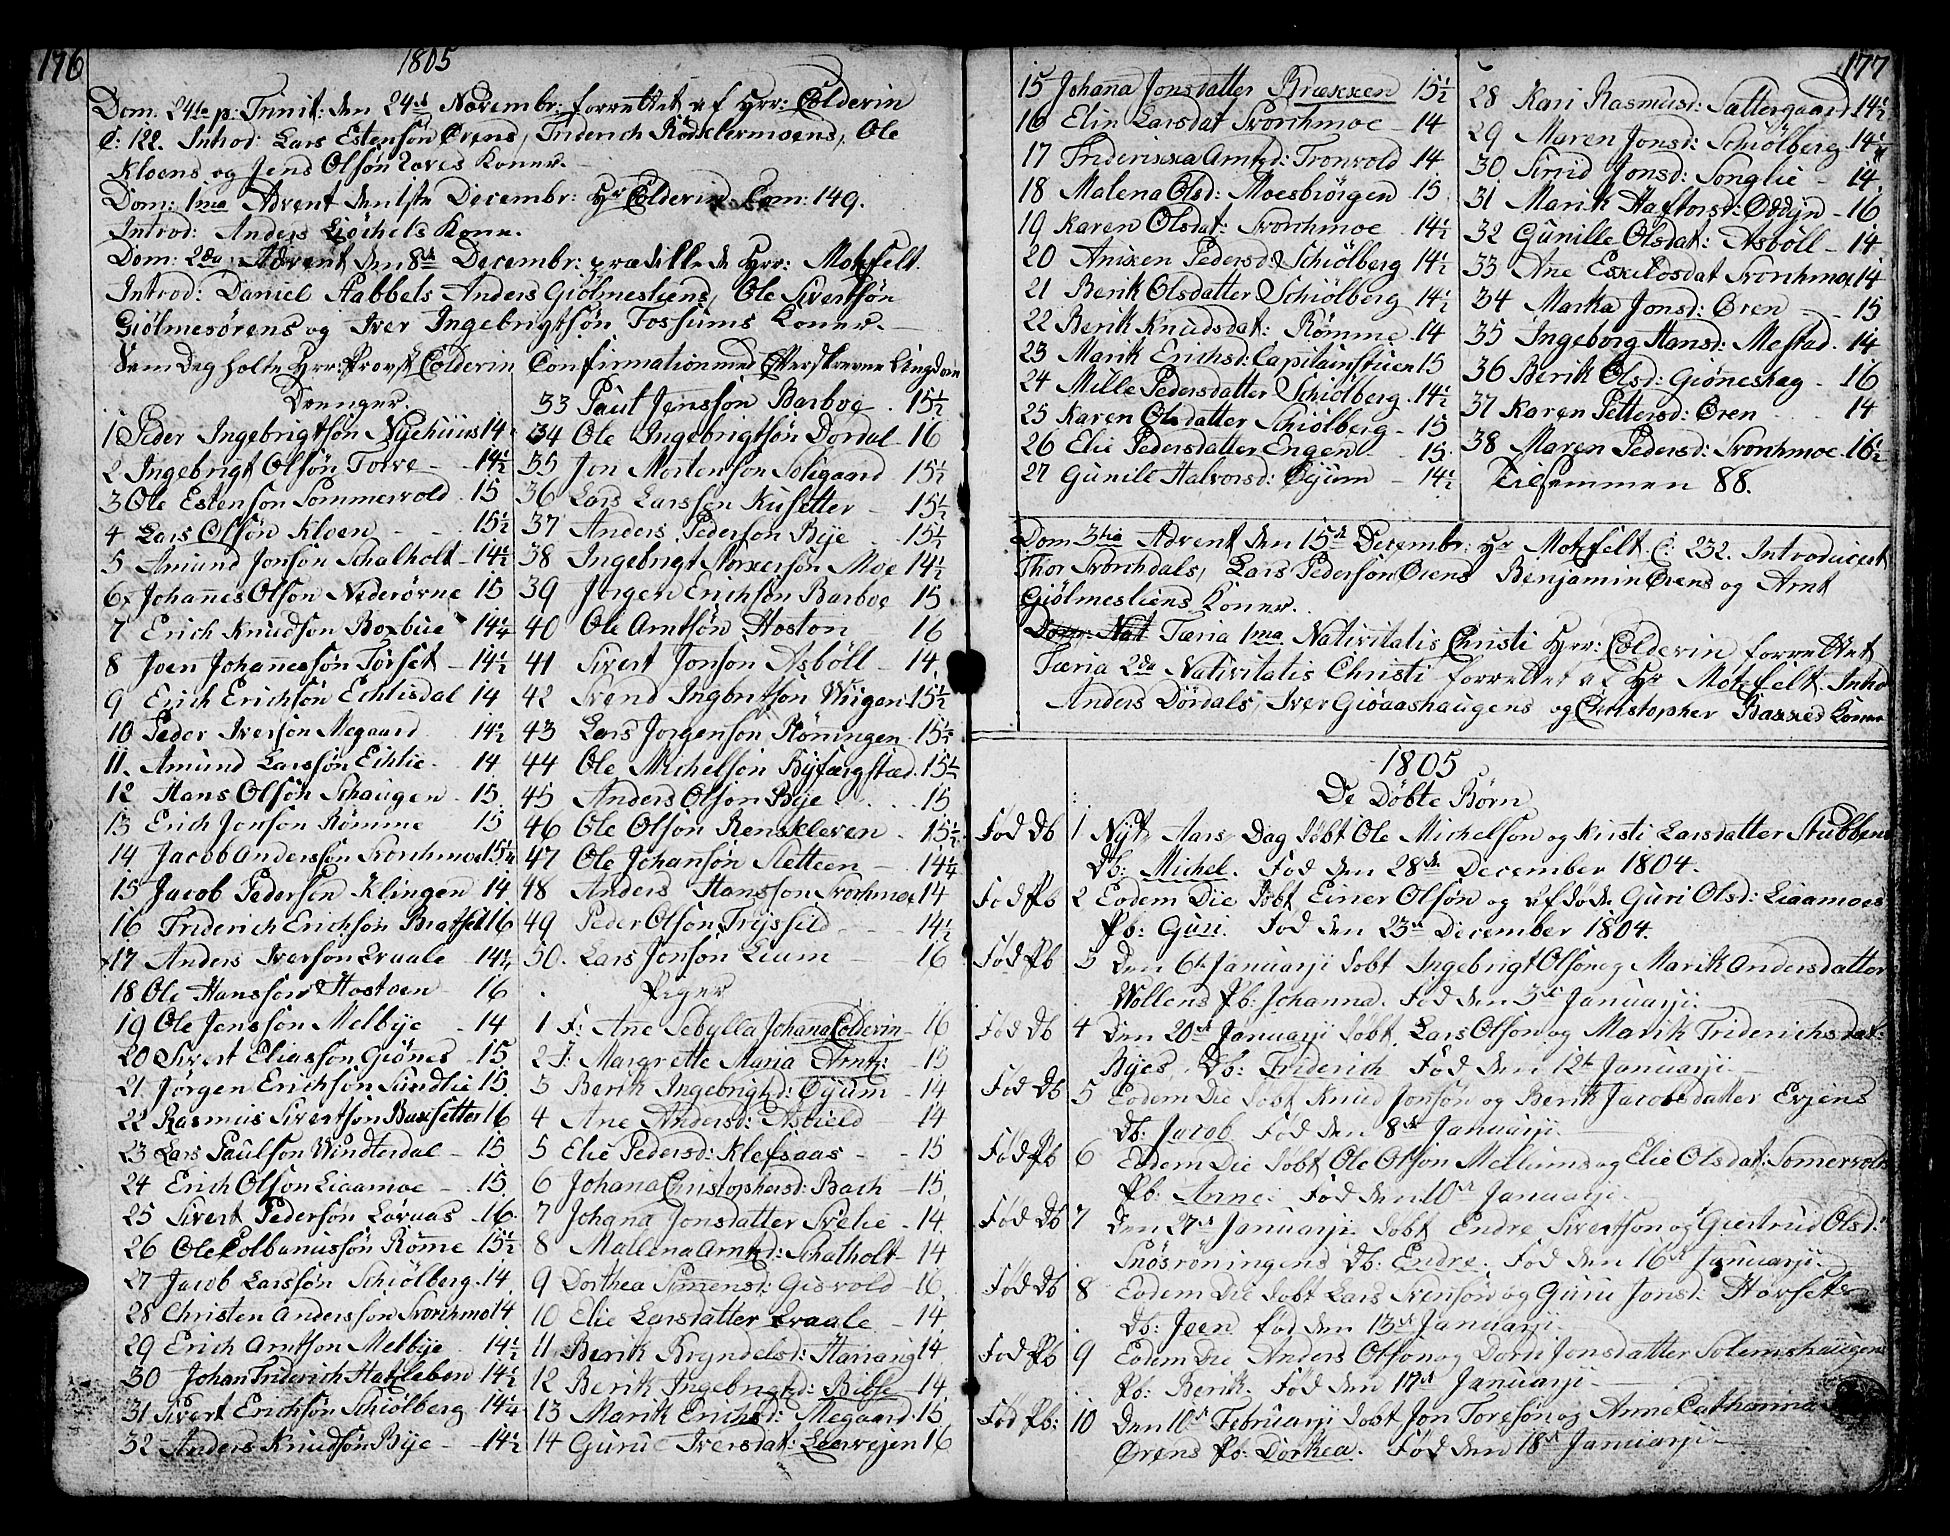 176
1805
Dom. 24de p: Trinit: den 24de Novembr: forrettet af Hrr: Colderin
C: 122. Introd: Lars Estensøn Ørens, Friderich Rødklermoens, Ole
Kloens og Jens Olsøn Loves Koner.
Dom: 1ma Advent den 1ste Decembr: Hr Colderin Com: 149.
Introd: Anders Giøthels Kone.
Dom: 2da Advent den 8de Decembr: prædikede Hrr: Motzfelt.
Introd: Daniel Habbels Anders Giølmesliens, Ole Sivertsøn
Giølmesørens og Iver Ingebrigtsøn Fossums Koner.
Sam Dag holte Hrr: Provst Colderin Confirmation med Efterskrevne Ungdom
Drenger.
1 Peder Ingebrigtsøn Nyehuus 14
2 Ingebrigt Olsøn Torve 14½
3 Ole Estensøn Sommervold 15
4 Lars Olssøn Kloen 15½
5 Amund Jonsøn Schalholt 14½
6 Johannes Olsøn Nederørne 15
7 Erich Knudsøn Boxbue 14¼
8 Joen Johannessøn Førset 14½
9 Erich Erichsøn Echlisdal 14
10 Peder Iversøn Megaard 14½
11 Amund Larssøn Eihlie 14
12 Hans Olsøn Schaugen 15
13 Erich Jonsøn Rømme 15
14 Jacob Anderssøn Svorchmoe 15¼
15 Jacob Pedersen Klingen 14
16 Friderich Erichsøn Bratset 16
17 Anders Iversøn Qvaale 14¼
18 Ole Hanssøn Hostoen 16
19 Ole Jenssøn Melbye 14
20 Sivert Eliassøn Giønes 15
21 Jørgen Erichsøn Sundlie 15
22 Rasmus Sivertsøn Buxsetter 16
23 Lars Paulsøn Windterdal 15
24 Erich Olsøn Liaamoe 15
25 Sivert Pedersøn Lovaas 16
26 Ole Colbanussøn Rømme 15½
27 Jacob Larssøn Schiølberg 14
28 Christen Anderssøn Svorchmo 14
29 Erich Arntsøn Melbye 14½
30 Johan Friderich Hatzleben 14½
31 Sivert Erichsøn Schiølberg 14¼
32 Anders Knudsøn Bye 14½
33 Paul Jenssøn Barboe 15½
34 Ole Ingebrigtsøn Dordal 16
35 Jon Mortensøn Soligaard 15½
36 Lars Larssøn Kusetter 15½
37 Anders Pedersøn Bye 15½
38 Ingebrigt Torkersøn Moe 14½
39 Jørgen Erichsøn Barboe 15
40 Ole Arntsøn Hoston 16
41 Sivert Jonsøn Asbøll 14
42 Svend Ingbritsøn Wiigen 15½
43 Lars Jorgensøn Rønningen 15½
44 Ole Michelsøn Byfærgstæd 15½
45 Anders Olsøn Bye 15
46 Ole Olsøn Renskleven 15½
47 Ole Johansøn Sletteen 14¼
48 Anders Hanssøn Svorchmoe 14
49 Peder Olsøn Trysfild 14½
50. Lars Jonsøn Lium 16
Piger
1 F: Ane Sebylla Johana Colderin 16
2 J: Margrette Maria Arntz: 15
3 Berit Ingebrigtd: Øyum 14
4 Ane Andersd: Asbield 14
5 Elie Pedersd: Klefsaas 15
6 Johana Christophersd: Bach 15
7 Johana Jonsdatter Svelie 14
8 Mallena Arntzd: Schalholt 14
9 Dorthea Simensd: Gisvold 16
10 Elie Larsdatter Qvaale 14
11 Berit Bryndelsd: Harang 14
12 Berit Ingebrigtsd: Bibse 14
13 Marit Erichsd: Megaard 15
14 Gurue Iversdat: Leervejen 16
177
15 Johana Jonsdatter Brækken 15½
16 Elin Larsdat Svorchmoe 14
17 Friderikka Arntzd: Tronvold 14
18 Malena Olsd: Moesbrørgen 15
19 Karen Olsdat: Svorchmoe 14½
20 Aniken Pedersd: Schiølberg 14½
21 Berit Olsdatter Schiølberg 14½
22 Berit Knudsdat: Rømme 14
23 Marit Erichsd: Capitainstuen 15
24 Mille Pedersdatter Schiølberg 14½
25 Karen Olsdatter Schiølberg 15
26 Elie Pedersdatter Engen 15
27 Gunild Halvorsd: Øyum 14½
28 Kari Rasmusd: Sattergaard 14½
29 Maren Jonsd: Schiølberg 14½
30 Sirrid Jonsd: Songlie 14
31 Marit Haftorsd: Oddyn 16
32 Gunille Olsdat: Asbøll 14
33 Ane Eskildsdat Svorchmoe 14
34 Marta Jonsd: Øren 15
35 Ingeborg Hansd: Mestad 14
36 Berit Olsd: Giøneshag 16
37 Karen Pettersd: Øren 14
38 Maren Pedersd: Svorchmoe 16½
Tilsammen 88.
Dom 3tia Advent den 15de Decembr: Hr Motzfelt. C: 232. Introduceret
Thor Svorchdals, Lars Pedersøn Ørens Benjamin Ørens og Arnt
Giølmesliens Koner.
Dom: Nat Færia 1ma Nativitatis Christi Hrr: Colderin forrettet
Færia 2da Nativitatis Christi forrettet af Hr Motzfelt. Introd
Anders Dørdals, Iver Giøaashaugens og Christopher Bakkes Koner
1805
De Døbte Børn
Fød Db 1 Nyt Aars Dag døbt Ole Michelsøn og Kirsti Larsdatter Stubbens
Db: Michel. Fød den 28de December 1804.
Fød Pb 2 Eodem Die døbt Einer Olsøn og afdøde Guri Olsd: Liaamoes
Pb: Guri. Fød den 23de December 1804.
Fød Pb 3 Den 6te Januarji døbt Ingebrigt Olsøn og Marit Andersdatter
Wollens Pb: Johanna. Fød den 3de Januarji.
Fød Db 4 Den 20de Januarji døbt Lars Olsøn og Marit Friderichsdat:
Byes. Db: Friderich Fød den 12te Januarji
Fød Db 5 Eodem Die døbt Knud Jonsøn og Berit Jacobsdatter Evjens
Db: Jacob Fød den 8de Januarji.
Fød Pb 6 Eodem Die døbt Ole Olsøn Mellums og Elie Olsdat: Somervold
Pb: Anne. Fød den 10de Januarji
Fød Db 7 Den 27de Januarji døbt Endre Sivertsøn og Giertrud Olsd:
Snøsrøningens Db: Endre. Fød den 16de Januarji
Fød Db 8 Eodem Die døbt Lars Svensøn og Guru Jonsd: Horsets
Db: Joen fød den 13de Januarji
Fød Pb 9 Eodem Die Anders Olsøn og Dordi Jonsdatter Solemshaugens
Pb: Berit. Fød den 17de Januarji
Fød Pb: 10 Den 10de Februarji døbt Jon Toresøn og Anne Catharina
Ørens Pb: Dorthea. Fød den 18de Januarji